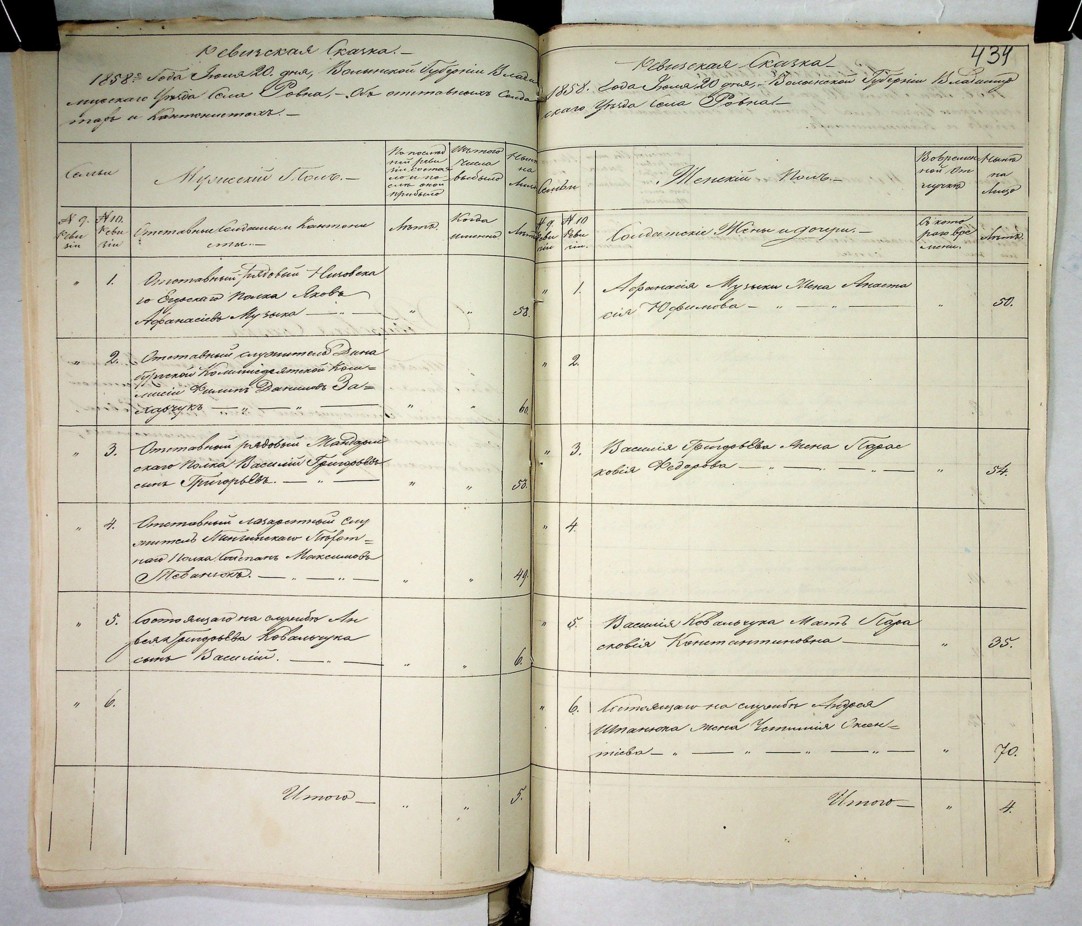 Ревизская Сказка.—
1858го Года Июля 20. дня, Волынской Губерніи Влади
мірскаго Уѣзда села Ровна,— Объ отставныхъ солда
тахъ и Кантонистахъ.—
Семьи
Мужескій Полъ.—
По послѣд
ней реви
зіи состоя
ло и по
слѣ оной
прибыло
Изъ того
числа
выбыло
Нынѣ
на
Лицо
№ 9. Реви зіи
№ 10. Реви зіи
Отставные солдаты и Кантони
сты.—
Лѣтъ.
Когда
именно
Лѣтъ
" 1. Отставный рядовый Низовска
го Егерскаго Полка Яковъ
Афанасіевъ Музыка — " " 58.
" 2. Отставный служитель Дина
бургской Коммисаріатской Ком=
мисіи Филипъ Даниловъ За=
харчукъ — " — " — " " 60.
" 3. Отставный рядовый
скаго Полка Василій Григорьевъ
сынъ Григорьевъ. — " — " " 53.
" 4. Отставный лазаретный слу
житель Пѣхот=
наго Полка Максимовъ
— " — " — " " 49.
" 5. Состоящаго на службѣ Ан
дрея Григорьева Ковальчука
сынъ Василій. — " — " " 6.
" 6.
Итого — " " 5.
434
Ревизская Сказка—
1858. Года Июля 20 дня, Волынской Губерніи Владимір
скаго Уѣзда села Ровна—
Семьи
Женскій Полъ.—
Во времен
ной От
лучкѣ
Нынѣ
на
Лицо
№ 9. Реви зіи
№ 10 Реви зіи.
Солдатскіе Жены и дочери.—
Съ кото
раго вре
мени.
Лѣтъ.
" 1. Афанасія Музыки Жена Анаста
сія Юфимова — " " " " 50.
" 2.
" 3. Василія Григорьева Жена Парас
ковія Федорова — " — " — " 54.
" 4.
" 5. Василія Ковальчука Мать Пара
сковія Константиновна — " 35.
" 6. Состоящаго на службѣ Андрея
Шпанюка жена
— " — " — " — " " 70.
Итого— " 4.